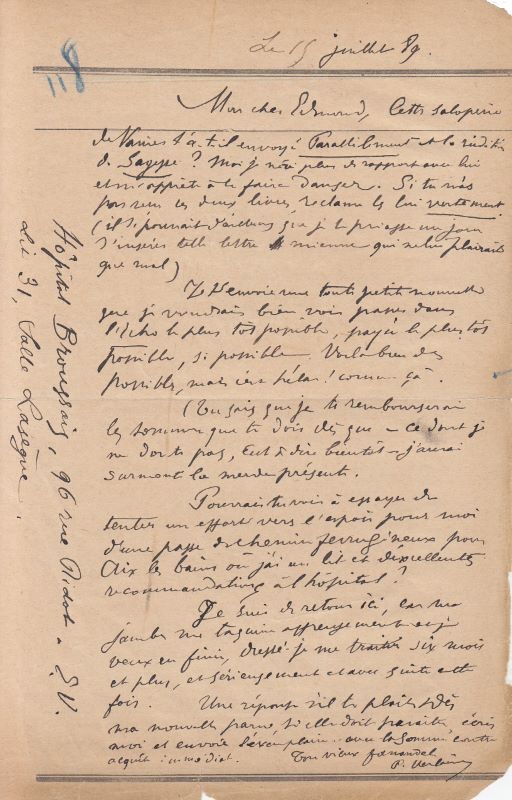 Le 15 juillet 89.
Mon cher Edmond, Cette saloperie
de Vanier t'a-t-il envoyé Parallèlement et la réédition
de Sagesse ? Moi je n'ai plus de rapport avec lui
et m'apprête à le faire danser. Si tu n'as
pas reçu ces deux livres réclame les lui vertement
(il se pourrait d'ailleurs que je te priasse un jour
d'insérer telle lettre mienne qui ne lui plairait
que mal)
Je t'envoie une toute petite nouvelle
que je voudrais bien voir passer dans
l'Echo le plus tôt possible, payée le plus tôt
possible, si possible. Voilà bien des
possible, mais c'est hélas! comme ça.
(Tu sais que je te rembourserai
les sommes que te dois dès que – ce dont je
ne doute pas, c'est à dire bientôt – j'aurai
surmonté la merde présente.
Pourrais-tu voir à essayer de
tenter un effort vers l'espoir pour moi
d'une passe de chemin ferrugineux pour
Aix les bains où j'ai un lit et d'excellentes
recommandations à l'hôpital ?
Je suis de retour ici, car ma
jambe me taquine affreusement et je
veux en finir, dussé-je me traiter six mois
et plus, et sérieusement et avec suite cette
fois. Une réponse s'il te plait et dès
ma nouvelle parue, si elle doit paraître, écris
moi et envoie exemplaire avec la somme contre
acquit immédiat. Ton vieux
P. Verlaine
Hôpital Broussais, 96 rue Didot. E.V.
Lit 31, Salle Lasègue.